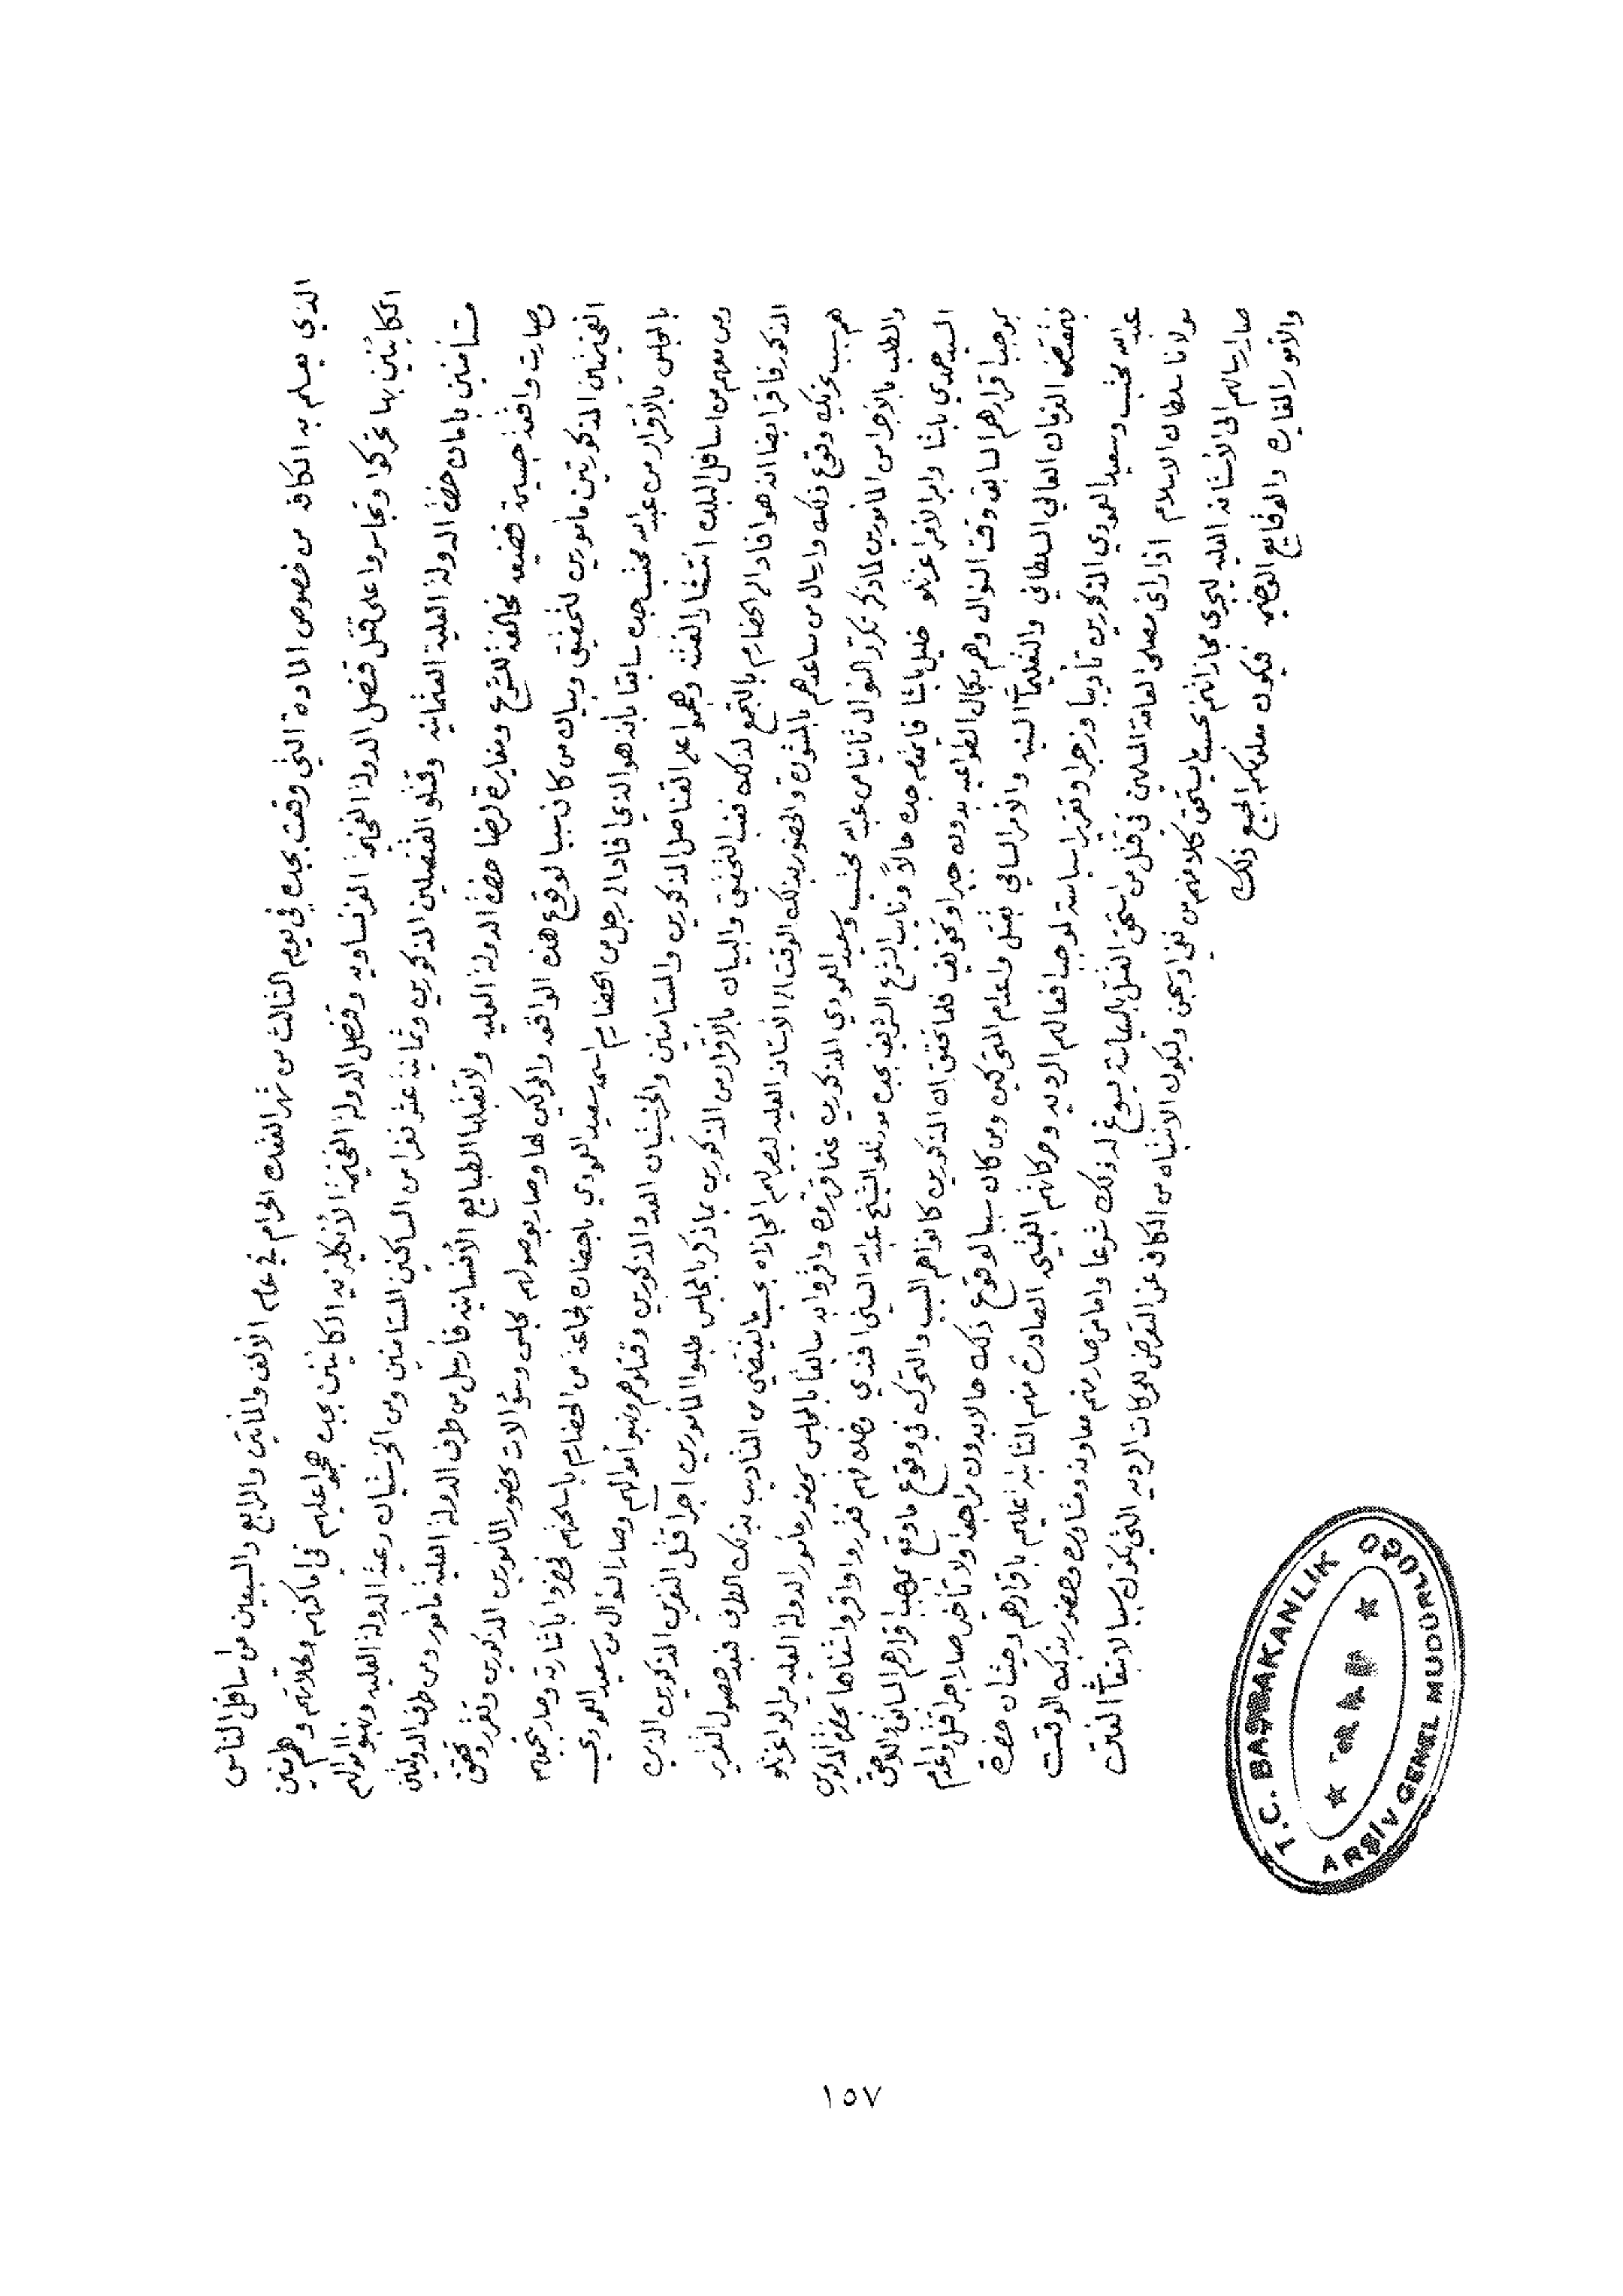 الذي يعلم به الكافه من خصوص المادة التي وقعت بجده في يوم الثالث من شهر القعده الحرام في عام الالف والمائتين والرابع والسبعين من اسافل الناس
الكائنين بها تحركوا وتجاسروا على قتل قنصل الدولة الفخيمة الفرنساويه وقنصل الدولة الفخيمة الانكليزيه الكائنين بجده هجموا عليهم في اماكنهم ومحلاتهم وهم
مستأمنين بامان حضرة الدولة العلية العثمانيه وقتلوا القنصلين المذكورين وثمانية عشر نفرا من الساكنين المستامنين ومن الخرستيان رعية الدولة العليه ونهبوا اموالهم
وصارت واقعة جسيمة فضيعه مخالفة للشرع ومغايرة لرضا حضرة الدولة العليه ولا تقبلها الطبايع الانسانيه فأرسل من طرف الدولة العلية مأمور ومن طرف الدولتين
الفخيمتين المذكورتين مأمورين لتحقيق وبيان من كان سببا لوقوع هذه الواقعه والمحركين لها وصار بوصولهم مجلس وسؤالات بحضور المأمورين المذكورين وتقرر وتحقق
بالمجلس بالاقرار من عبدالله محتسب جده سابقا بانه هو الذي افاد الى رجل من الحضارم اسمه سعيد العمودي باحضاره لجماعة من الحضارم باسلحتهم فحضروا باشارته وصار تجمعهم
ومن معهم من اسافل البلد انتشار الفتنه وهجموا على القناصل المذكورين والمستامنين والخرستيان العدد المذكورين وقتلوهم ونهبوا أموالهم وصار السؤال من سعيد العمودي
المذكور فاقر ايضا انه هو افاد الى الحضارم بالتجمع لذلك فعقب التحقيق والبيان بالاقرار من المذكورين بما ذكر بالمجلس طلبوا المأمورين اجرا قتل النفرين المذكورين الذين
هم سبب تحريك وقوع ذلك وارسال من ساعدهم بالمشورة والحضور بذلك الوقت الى الاستانه العليه ليصير لهم المجازاه بحسب ما يقتضي من التاديب بذلك الطرف فبعد حصول التقرير
والطلب بالاجرا من المأمورين لما ذكر تكرر السؤال ثانيا من عبدالله محتسب وسعيد العمودي المذكورين عما قرروه واقروا به سابقا بالمجلس بحضور مأمور الدولة العليه مير لوا عزتلو
السيد حمدي باشا وامير الامرا عزتلو خليل باشا قايمقام جده حالا ونايب الشرع الشريف بجده مودتلو الشيخ عبدالله افندي فقرروا واقروا بحضور المذكورين
بموجب اقرارهم السابق وقت السؤال وهم بكمال الطواعيه بدون جبر او تخويف فلما تحقق ان المذكورين كانوا هم السبب والتحرك في وقوع ما وقع بموجب اقرارهم السابق واللاحق
فبمقتضى الفرمان العالي السلطاني والتعليمات السنيه والامر السامي بقتل واعدام المتحركين ومن كان سببا لوقوع ذلك حالا بدون مراجعة ولا تأخير صار اجرا قتل واعدام
عبدالله محتسب وسعيد العمودي المذكورين تأديبا وزجرا وتعزيرا سياسة لموجب افعالهم الرديه وحركاتهم الصادرة منهم الثابتة عليهم باقرارهم وحيث ان حضرة
مولانا سلطان الاسلام اذا رأى مصلحة لعامة المسلمين في قتل من استحق القتل بالسياسة يسوغ له ذلك شرعا واما من صار منهم معاونه ومشاوره وحضور بذلك الوقت
صار ارسالهم الى الاستانه العليه ليجري مجازاتهم بحسب ما يستحق كلا منهم من نفي او سجن وليكون الانتباه من الكافه عن التعرض للحركات الرديه التي تكون سببا لانبعاث الفتن
والامور المغايره والوقايع الوخيمه فيكون معلومكم الجميع ذلك
T.C. BAŞBAKANLIK ARŞİV GENEL MÜDÜRLÜĞÜ
١٥٧